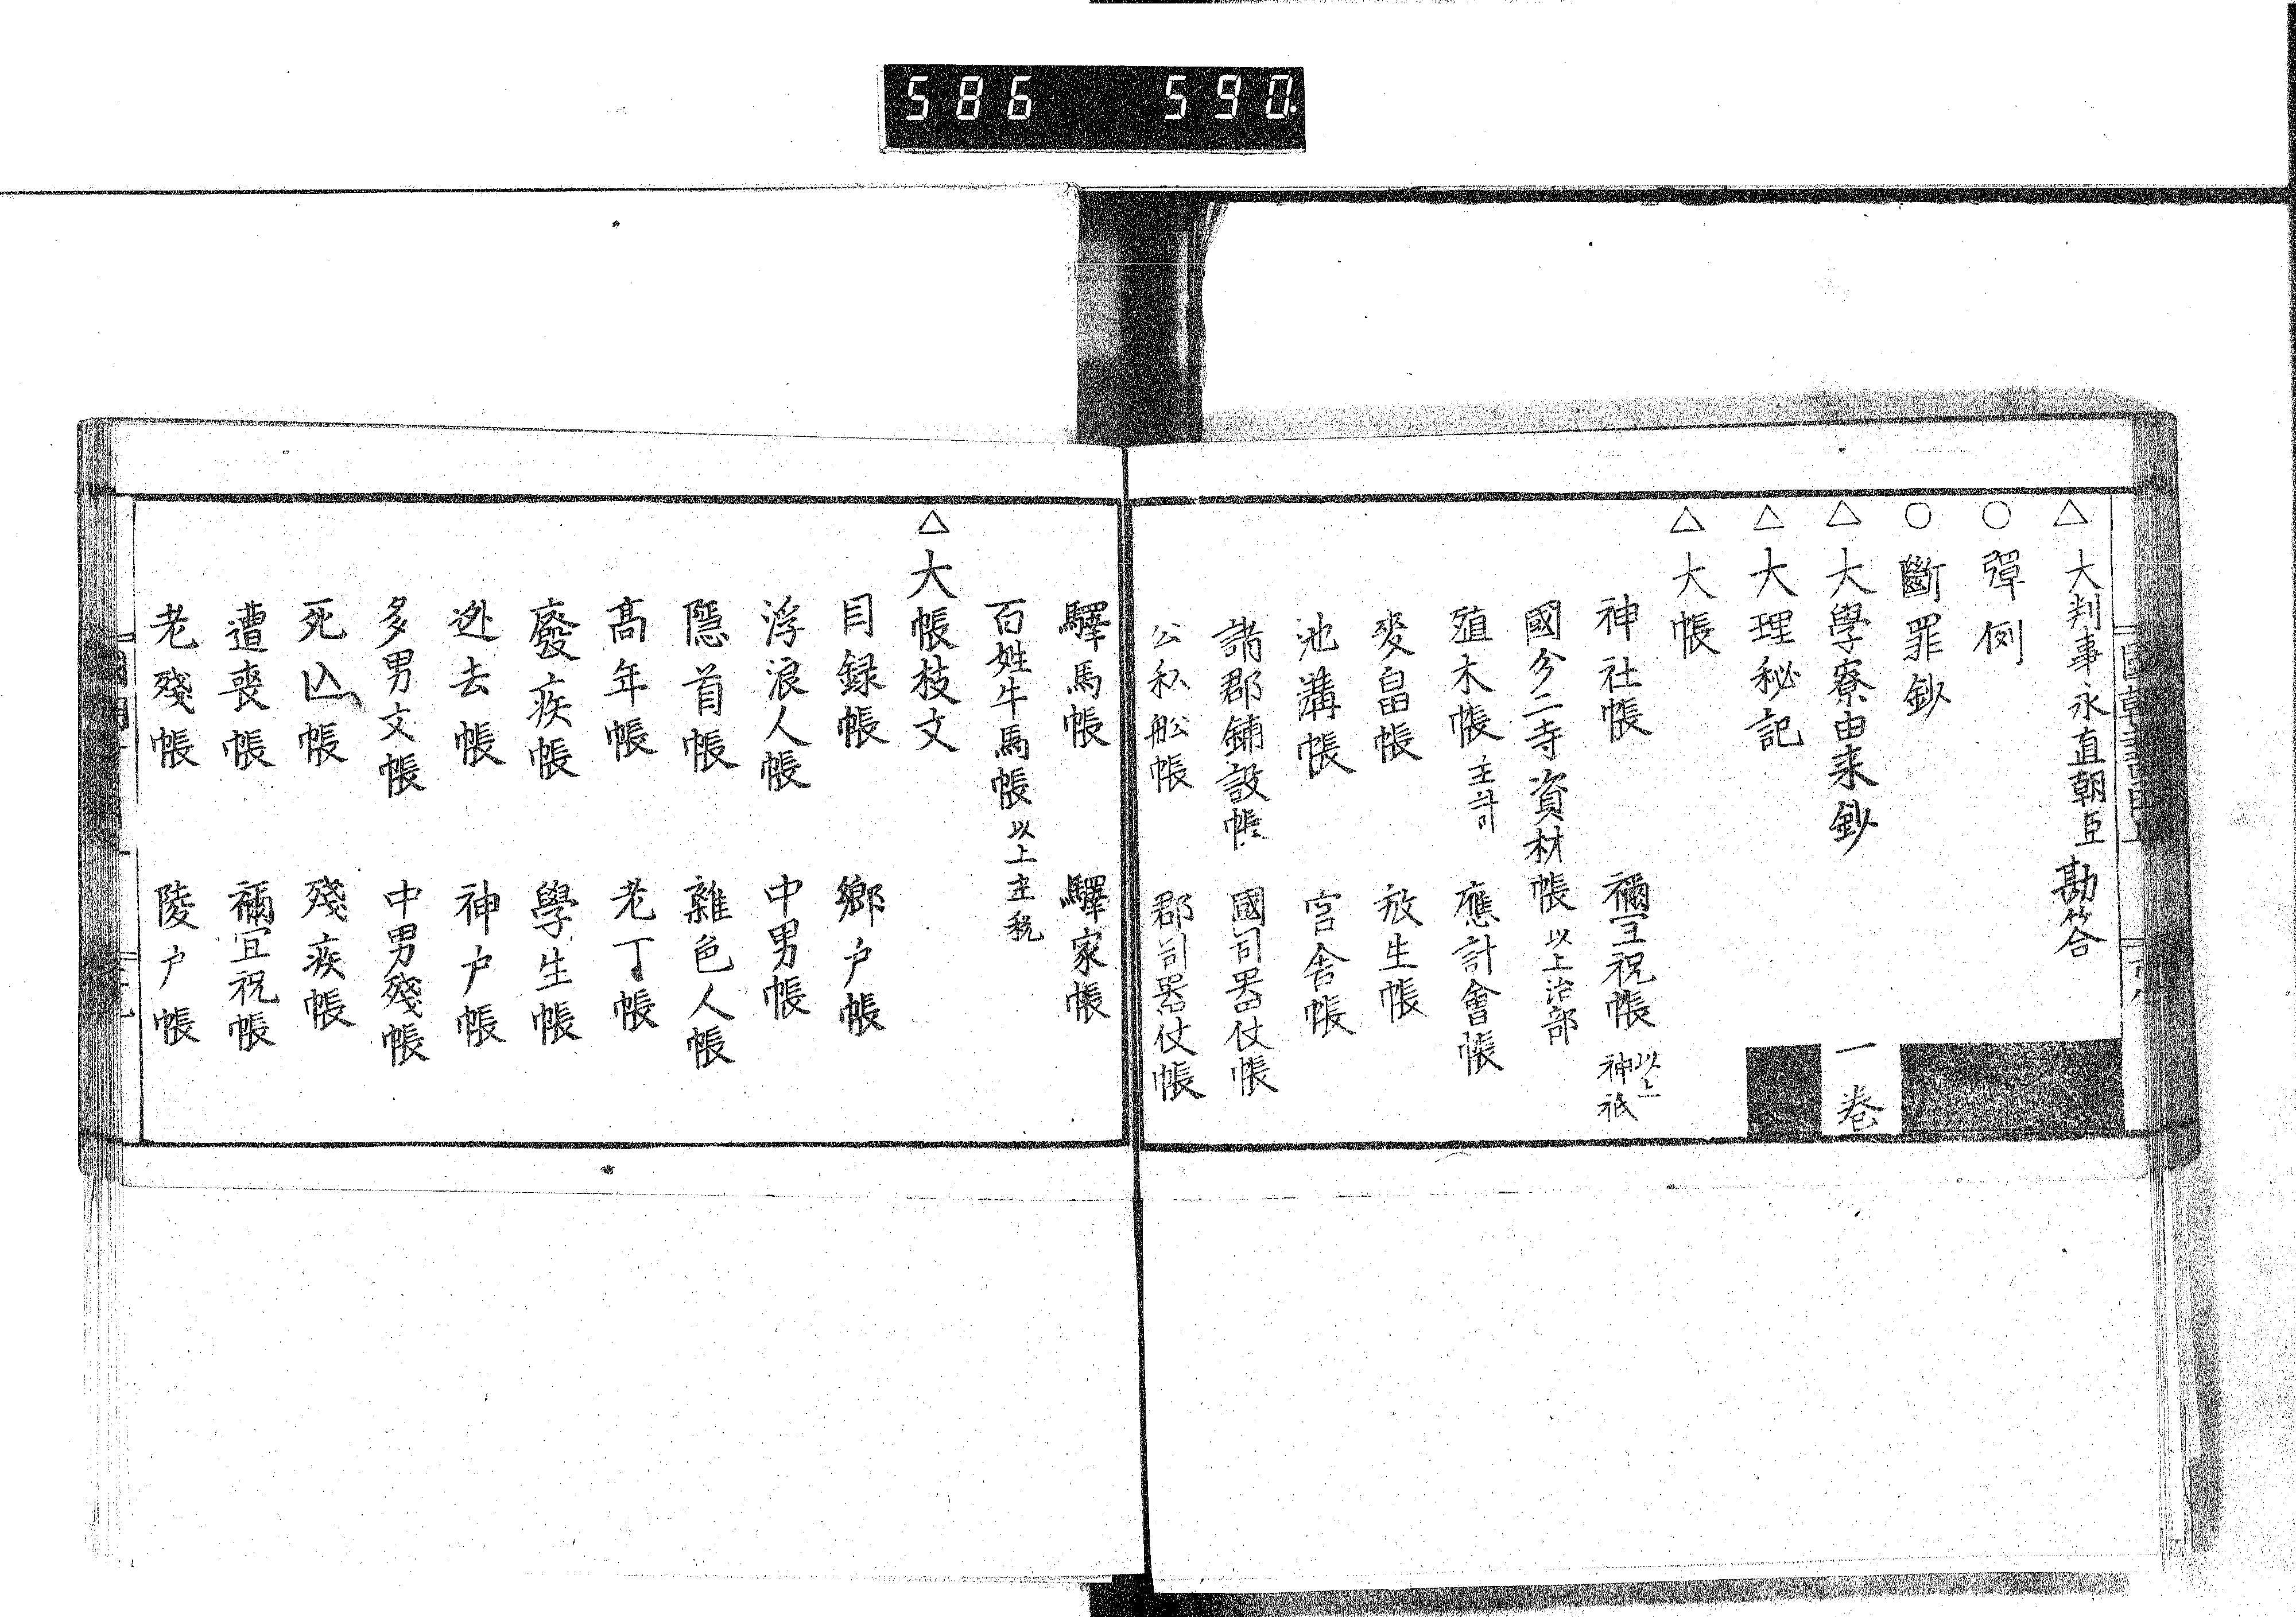 586 590.
△大判事永直朝臣勘答
○彈例
○斷罪鈔
△大學寮由来鈔 一卷
△大理秘記
△大帳
神社帳 禰宜祝帳 以上神祇
國分二寺資材帳 以上治部
殖木帳 主計 應計會帳
麥畠帳 放生帳
池溝帳 官舍帳
諸郡鋪設帳 國司器仗帳
公私舩帳 郡司器仗帳
驛馬帳 驛家帳
百姓牛馬帳 以上主税
△大帳枝文
目録帳 鄉户帳
浮浪人帳 中男帳
隱首帳 雜色人帳
髙年帳 老丁帳
廢疾帳 學生帳
迯去帳 神户帳
多男父帳 中男殘帳
死亡帳 殘疾帳
遭喪帳 禰宜祝帳
老殘帳 陵户帳